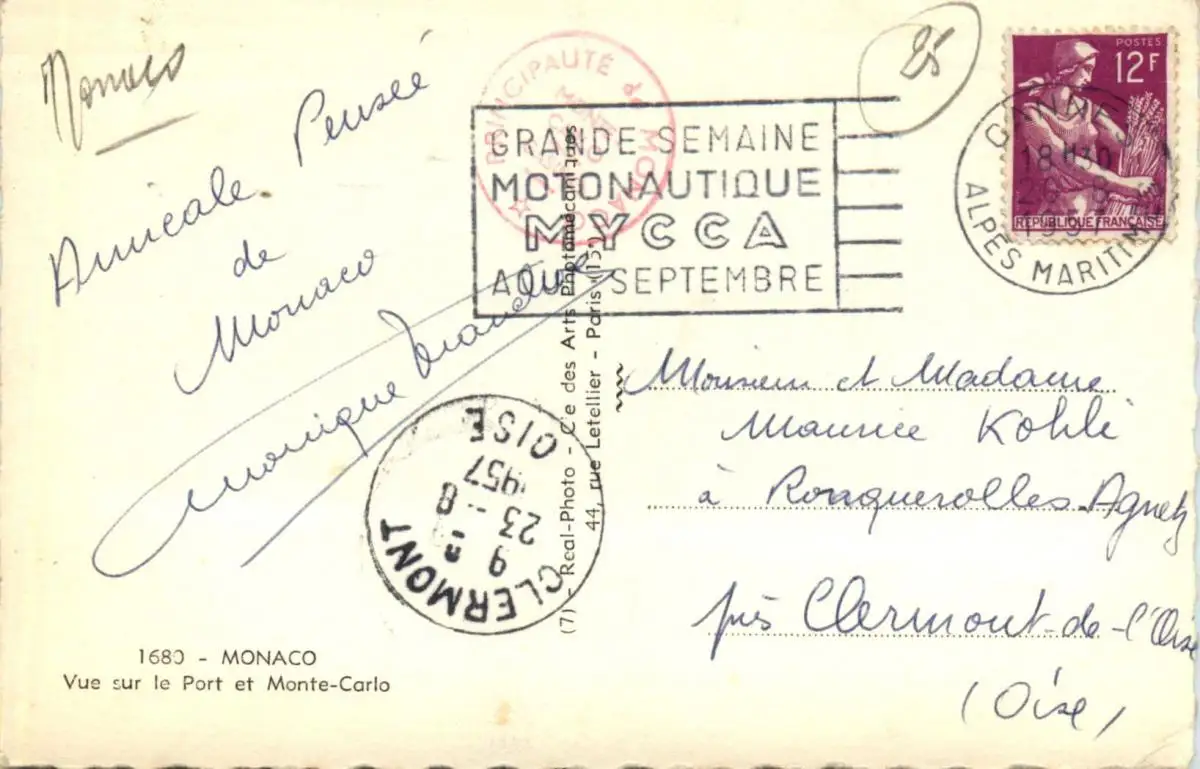 Monaco
Amicale Pensée
de
Monaco
Monique
1680 - MONACO
Vue sur le Port et Monte-Carlo
PRINCIPAUTÉ de MONACO
GRANDE SEMAINE
MOTONAUTIQUE
MYCCA
AOUT SEPTEMBRE
25
POSTES
12F
REPUBLIQUE FRANÇAISE
CANNES
18 H30
1957
ALPES MARITIMES
CLERMONT
9
23 - 8
1957
OISE
(7) - Real-Photo - Cie des Arts Photomécaniques
44, rue Letellier - Paris (15e)
Monsieur et Madame
Maurice Kohli
à Ronquerolles-Agnetz
près Clermont-de-l'Oise
(Oise)